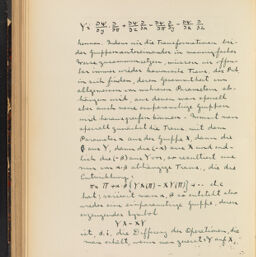 Y: ∂Ψ/∂y · ∂/∂π + ∂Ψ/∂z ∂/∂κ − ∂Ψ/∂π ∂/∂y − ∂Ψ/∂κ ∂/∂z
kennen. Indem wir die Transformationen bei-
der Gruppen miteinander in mannigfacher
Weise zusammensetzen, müssen wir offen-
bar immer wieder kanonische Trans. des Pak
in sich finden, deren Gesamtheit im
allgemeinen von mehreren Parametern ab-
hängen wird, aus denen man speziell
aber auch neue einparametrige Gruppen
wird herausgreifen können. Nimmt man
speziell zunächst die Trans. mit dem
Parameter α aus der Gruppe X, dann die
β aus Y, dann die (-α) aus X und end-
lich die (-β) aus Y vor, so resultiert eine
nur von α·β abhängige Trans., die die
Entwicklung:
π = Π + α β (YX(Π) − XY(Π)) + ... etc
hat; variiert man α, β so entsteht also
wieder eine einparametrige Gruppe, deren
erzeugendes Symbol
YX − XY
ist, d.i. die Differenz der Operationen, die
man erhält, wenn man zuerst Y auf X,